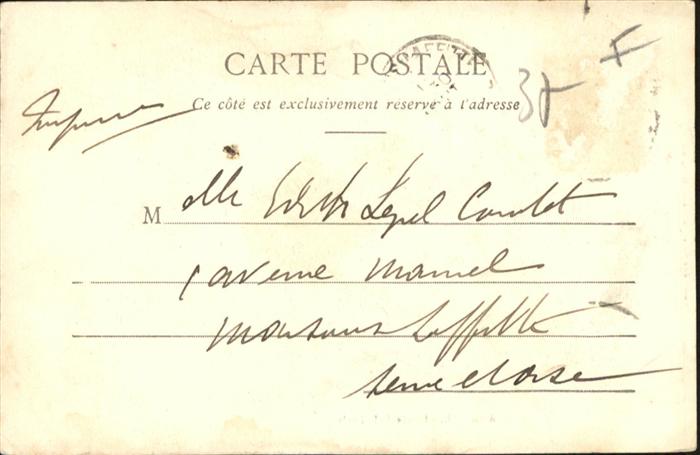 CARTE POSTALE
Ce côté est exclusivement réservé à l'adresse
37 F
Imprimé
Melle Edith Lepel Cointet
1 avenue
Maisons Laffitte
Seine et Oise